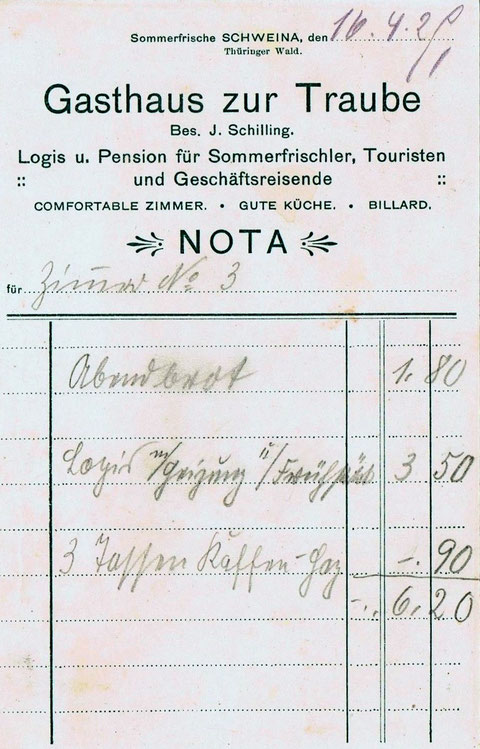 Sommerfrische SCHWEINA, den 16.4.2
Thüringer Wald.
Gasthaus zur Traube
Bes. J. Schilling.
Logis u. Pension für Sommerfrischler, Touristen
:: und Geschäftsreisende ::
COMFORTABLE ZIMMER. • GUTE KÜCHE. • BILLARD.
NOTA
für Zimmer No 3
Abendbrot 1.80
Logis m/Heizung u/Frühstück 3 50
3 Tassen Kaffee -.90
6.20